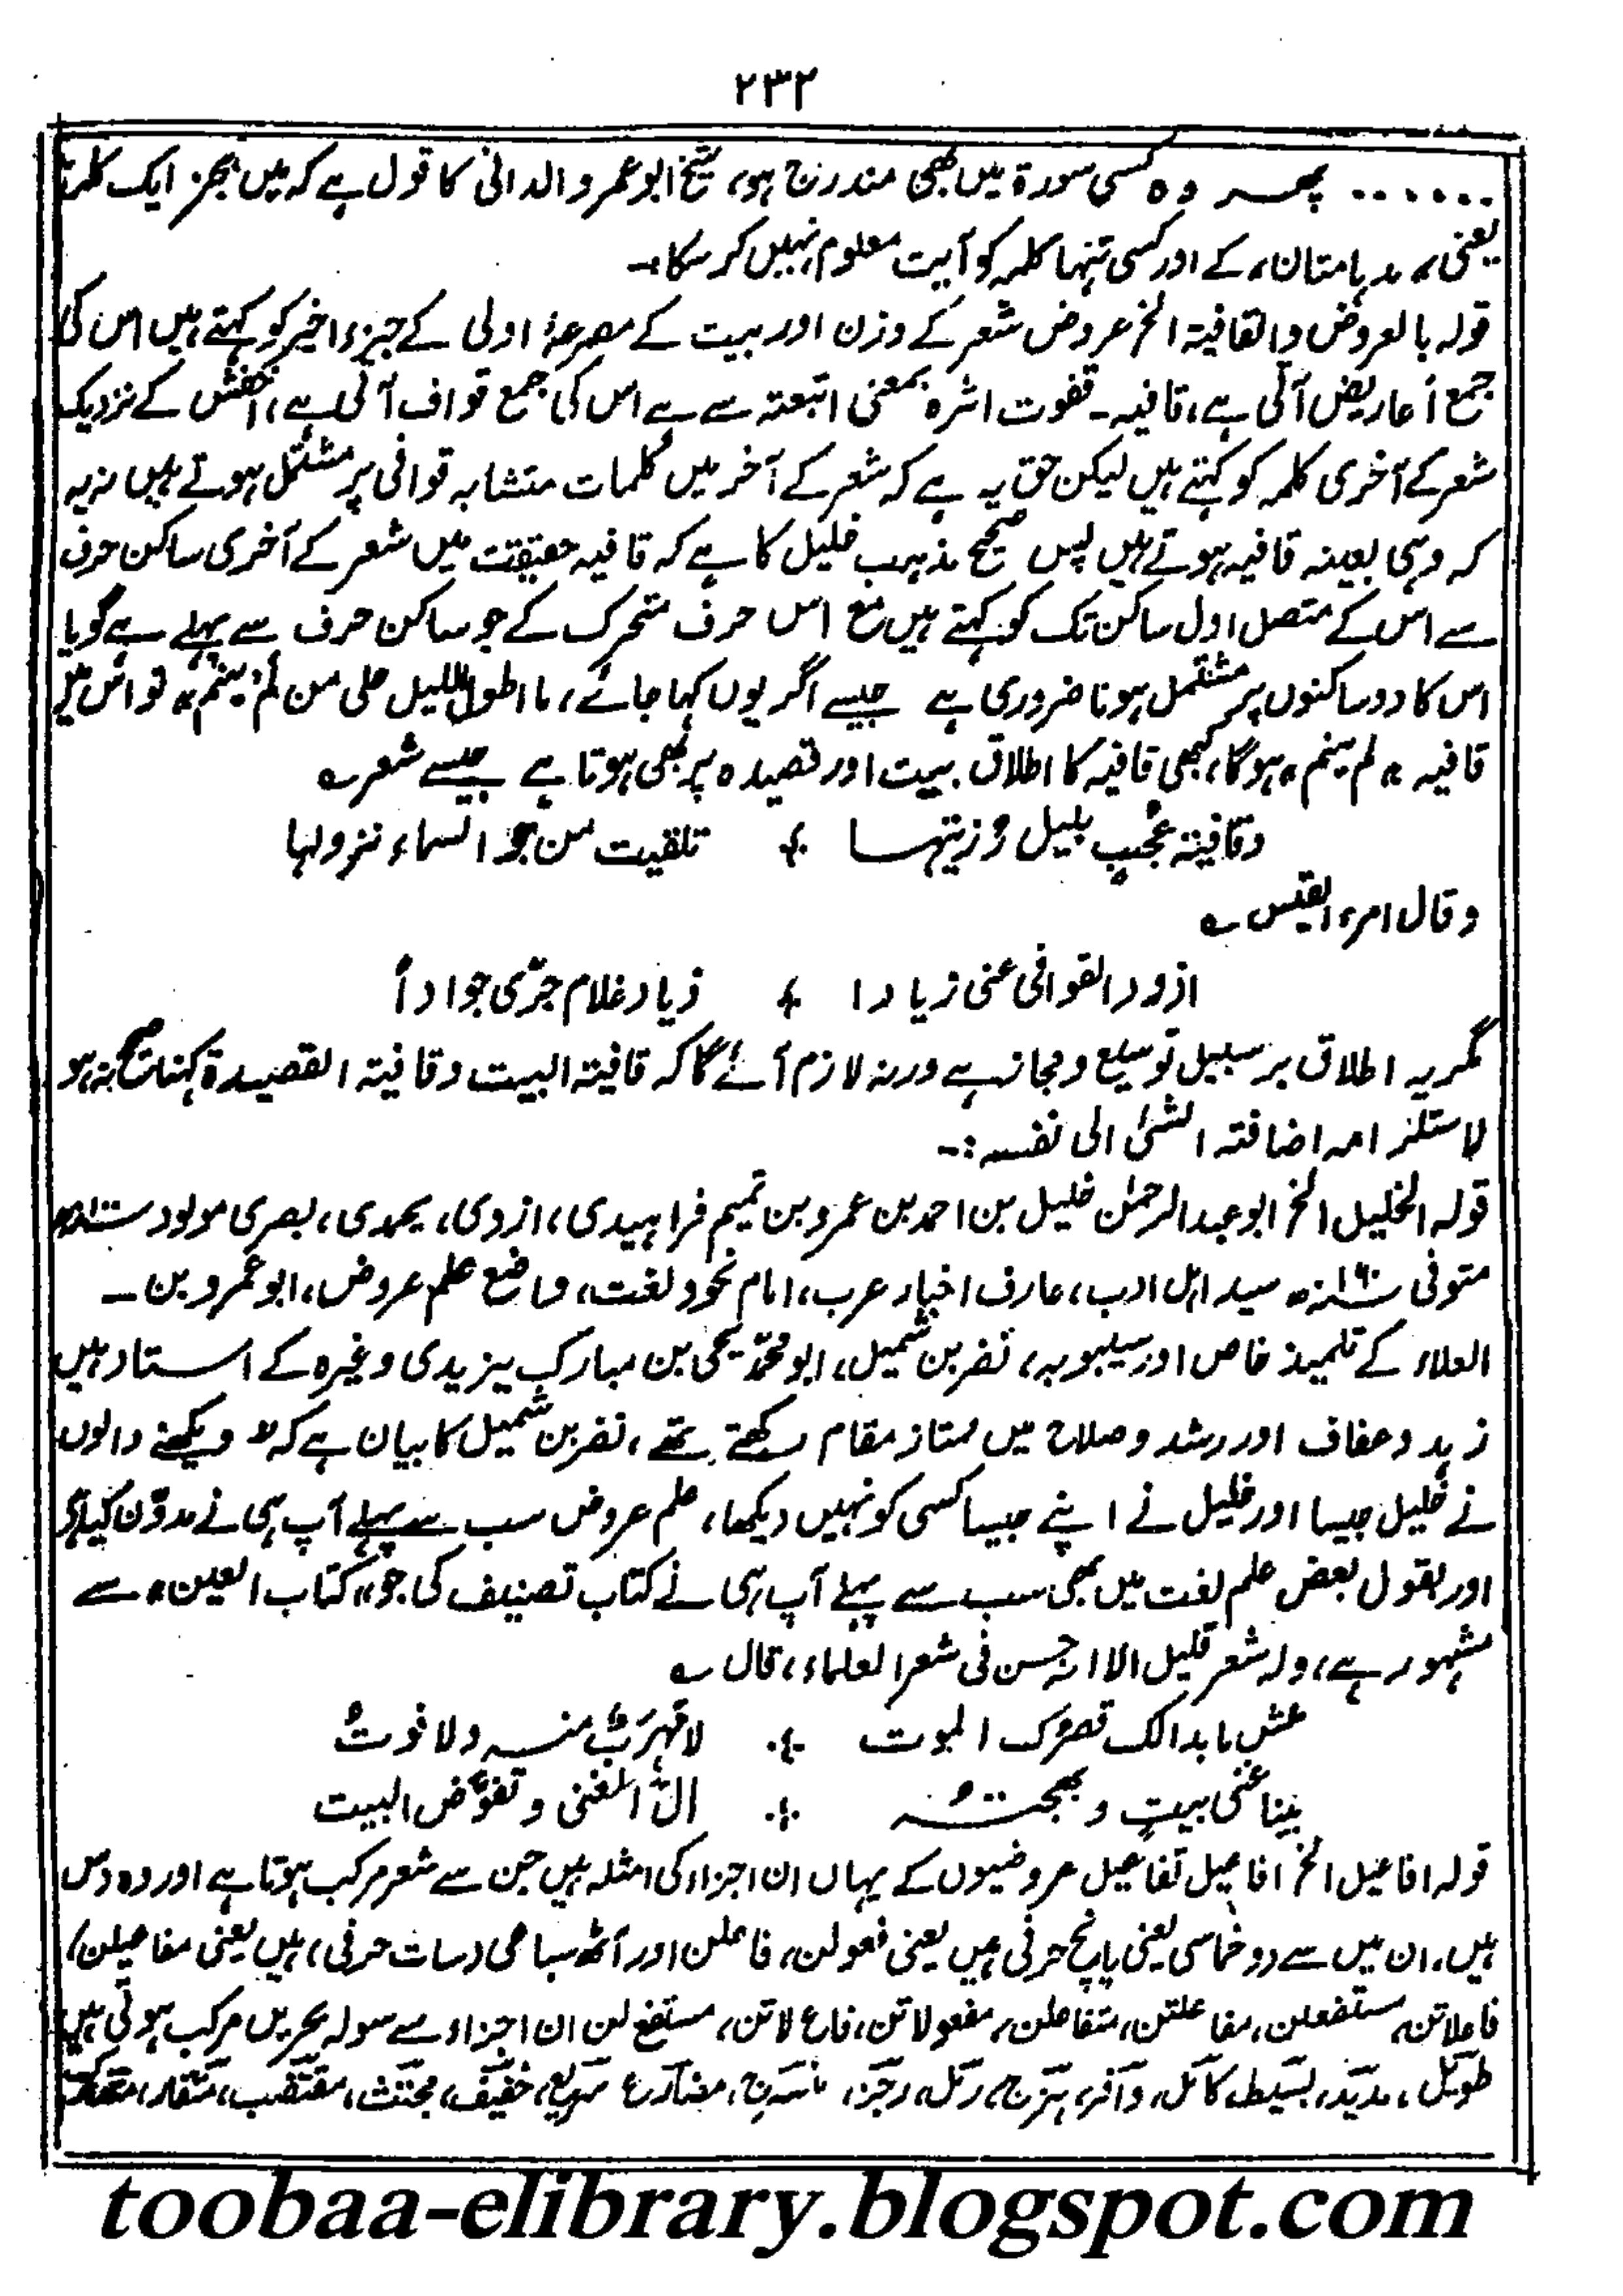 ۲۳۲
...... پھر وہ کسی سورۃ میں بھی مندرج ہو، شیخ ابو عمرو الدانی کا قول ہے کہ میں بجز ایک کلمہ
یعنی، مدہامتان، کے اور کسی تنہا کلمہ کو آیت معلوم نہیں کر سکا:۔
قولہ بالعروض والقافیۃ الخ عروض شعر کے وزن اور بیت کے مصرعۂ اولی کے جزء اخیر کو کہتے ہیں اس کی
جمع أعاریض آتی ہے، قافیہ۔ قفوت اثرہ بمعنی اتبعتہ سے ہے اس کی جمع قواف آتی ہے، اخفش کے نزدیک
شعر کے آخری کلمہ کو کہتے ہیں لیکن حق یہ ہے کہ شعر کے آخر میں کلمات متشابہ قوافی پر مشتمل ہوتے ہیں نہ یہ
کہ وہی بعینہ قافیہ ہوتے ہیں پس صحیح مذہب خلیل کا ہے کہ قافیہ حقیقت میں شعر کے آخری ساکن حرف
سے اس کے متصل اول ساکن تک کو کہتے ہیں مع اس حرف متحرک کے جو ساکن حرف سے پہلے ہے گویا
اس کا دو ساکنوں پر مشتمل ہونا ضروری ہے جیسے اگر یوں کہا جائے، ما اطول اللیل علی من لم ینم، تو اس میں
قافیہ " لم ینم " ہوگا، کبھی قافیہ کا اطلاق بیت اور قصیدہ پر بھی ہوتا ہے جیسے شعر ؎
وقافیۃ عجیب بلیل وزیتہا ؛ تلقیت من جو السماء نزولہا
وقال امرء القیس ؎
ازود القوافی عنی زیادا ؛ زیاد غلام جرّی جواداً
مگر یہ اطلاق بر سبیل توسیع و مجاز ہے ورنہ لازم آئے گا کہ قافیۃ البیت وقافیۃ القصیدۃ کہنا صحیح نہ ہو
لاستلزامہ اضافتہ الشئ الی نفسہ :۔
قولہ الخلیل الخ ابو عبدالرحمٰن خلیل بن احمد بن عمرو بن تمیم فراہیدی، ازدی، یحمدی، بصری مولود ۱۰۰ھ
متوفی ۱۷۰ھ سید اہل ادب، عارف اخبار عرب، امام نحو و لغت، واضع علم عروض، ابو عمرو بن ۔
العلاء کے تلمیذ خاص اور سیبویہ، نضر بن شمیل، ابو محمد یحی بن مبارک یزیدی وغیرہ کے استاد ہیں
زہد وعفاف اور رشد و صلاح میں ممتاز مقام رکھتے تھے، نضر بن شمیل کا بیان ہے کہ " دیکھنے والوں
نے خلیل جیسا اور خلیل نے اپنے جیسا کسی کو نہیں دیکھا، علم عروض سب سے پہلے آپ ہی نے مدوّن کیا ہے
اور بقول بعض علم لغت میں بھی سب سے پہلے آپ ہی نے کتاب تصنیف کی جو " کتاب العین " سے
مشہور ہے، ولہ شعر قلیل الا انہ حسن فی شعر العلماء، قال ؎
عش ما بدالک قصرک الموت ؛ لا مہرب منہ ولا فوت
بینا غنی بیت وبہجتہ ؛ زال الغنی وتقوض البیت
قولہ افاعیل الخ افاعیل تفاعیل عروضیوں کے یہاں ان اجزاء کی امثلہ ہیں جن سے شعر مرکب ہوتا ہے اور وہ دس
ہیں، ان میں سے دو خماسی یعنی پانچ حرفی ہیں یعنی فعولن، فاعلن اور آٹھ سباعی (سات حرفی) ہیں یعنی مفاعیلن،
فاعلاتن، مستفعلن، مفاعلتن، متفاعلن، مفعولاتن، فاع لاتن، مستفع لن ان اجزاء سے سولہ بحریں مرکب ہوتی ہیں
طویل، مدید، بسیط، کامل، وافر، ہزج، رمل، رجز، منسرح، مضارع سریع، خفیف، مجتث، مقتضب، متقار،
toobaa-elibrary.blogspot.com